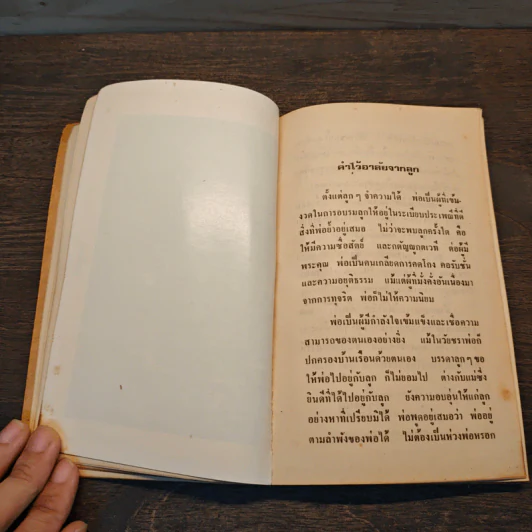 คำไว้อาลัยจากลูก
ตั้งแต่ลูก ๆ จำความได้ พ่อเป็นผู้ที่เข้ม-
งวดในการอบรมลูกให้อยู่ในระเบียบประเพณีที่ดี
สิ่งที่พ่อย้ำอยู่เสมอ ไม่ว่าจะพบลูกครั้งใด คือ
ให้มีความซื่อสัตย์ และกตัญญูกตเวที ต่อผู้มี
พระคุณ พ่อเป็นคนเกลียดการคดโกง คอรัปชั่น
และความอยุติธรรม แม้แต่ผู้ที่มั่งคั่งอันเนื่องมา
จากการทุจริต พ่อก็ไม่ให้ความนิยม
พ่อเป็นผู้มีกำลังใจเข้มแข็งและเชื่อความ
สามารถของตนเองอย่างยิ่ง แม้ในวัยชราพ่อก็
ปกครองบ้านเรือนด้วยตนเอง บรรดาลูก ๆ ขอ
ให้พ่อไปอยู่กับลูก ก็ไม่ยอมไป ต่างกับแม่ซึ่ง
ยินดีที่ได้ไปอยู่กับลูก ยังความอบอุ่นให้แก่ลูก
อย่างหาที่เปรียบมิได้ พ่อพูดอยู่เสมอว่า พ่ออยู่
ตามลำพังของพ่อได้ ไม่ต้องเป็นห่วงพ่อหรอก